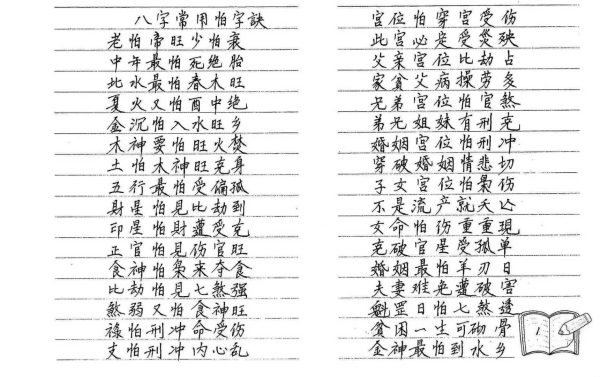 八字常用怕字訣
老怕帝旺少怕衰
中年最怕死绝胎
北水最怕春木旺
夏火又怕酉中绝
金沉怕入水旺乡
木神要怕旺火焚
土怕木神旺克身
五行最怕受偏孤
財星怕見比劫到
印星怕財遭受克
正官怕見伤官旺
食神怕枭来夺食
比劫怕見七煞强
煞弱又怕食神旺
禄怕刑冲命受伤
支怕刑冲内心乱
宫位怕穿宫受伤
此宫必是受災殃
父亲宫位比劫占
家貧父病操劳多
兄弟宫位怕官煞
弟兄姐妹有刑克
婚姻宫位怕刑冲
穿破婚姻情悲切
子女宫位怕枭伤
不是流产就夭亡
女命怕伤重重現
克破官星受孤单
婚姻最怕羊刃日
夫妻难免遭破害
魁罡日怕七煞透
貧困一生可砌骨
金神最怕到水乡
1